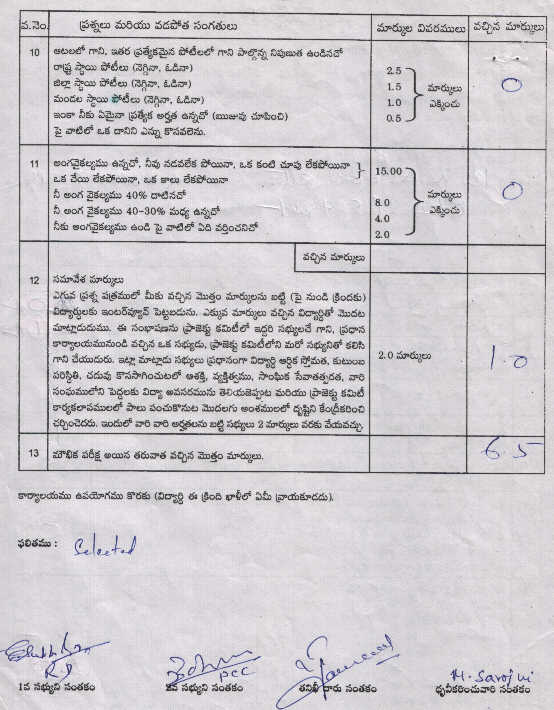 వ.నెం. ప్రశ్నలు మరియు వడపోత సంగతులు మార్కుల వివరములు వచ్చిన మార్కులు
10 ఆటలలో గాని, ఇతర ప్రత్యేకమైన పోటీలలో గాని పాల్గొన్న నిపుణత ఉండినచో
రాష్ట్ర స్థాయి పోటీలు (నెగ్గినా, ఓడినా) 2.5
జిల్లా స్థాయి పోటీలు (నెగ్గినా, ఓడినా) 1.5 మార్కులు 0
మండల స్థాయి పోటీలు (నెగ్గినా, ఓడినా) 1.0 ఎక్కించు
ఇంకా నీకు ఏమైనా ప్రత్యేక అర్హత ఉన్నచో (ఋజువు చూపించి) 0.5
పై వాటిలో ఒక దానిని ఎన్ను కొనవలెను.
11 అంగవైకల్యము ఉన్నచో, నీవు నడవలేక పోయినా, ఒక కంటి చూపు లేకపోయినా 15.00
ఒక చేయి లేకపోయినా, ఒక కాలు లేకపోయినా
నీ అంగ వైకల్యము 40% దాటినచో 8.0 మార్కులు 0
నీ అంగ వైకల్యము 40-30% మధ్య ఉన్నచో 4.0 ఎక్కించు
నీకు అంగవైకల్యము ఉండి పై వాటిలో ఏది వర్తించనిచో 2.0
వచ్చిన మార్కులు
12 సమావేశ మార్కులు
ఎగువ ప్రశ్న పత్రములో మీకు వచ్చిన మొత్తం మార్కులను బట్టి (పై నుండి క్రిందకు)
విద్యార్థులకు ఇంటర్వ్యూవ్ పెట్టబడును. ఎక్కువ మార్కులు వచ్చిన విద్యార్థితో మొదట
మాట్లాడుదుము. ఈ సంభాషణను ప్రాజెక్టు కమిటీలో ఇద్దరి సభ్యులచే గాని, ప్రధాన
కార్యాలయమునుండి వచ్చిన ఒక సభ్యుడు, ప్రాజెక్టు కమిటీలోని మరో సభ్యునితో కలిసి
గాని చేయుదురు. ఇట్లా మాట్లాడు సభ్యులు ప్రధానంగా విద్యార్థి ఆర్థిక స్తోమత, కుటుంబ 2.0 మార్కులు 1.0
పరిస్థితి, చదువు కొనసాగించుటలో ఆశక్తి, వ్యక్తిత్వము, సాంఘిక సేవాతత్పరత, వారి
సంఘములోని పెద్దలకు విద్యా అవసరమును తెలియజెప్పుట మరియు ప్రాజెక్టు కమిటీ
కార్యకలాపములలో పాలు పంచుకొనుట మొదలగు అంశములలో దృష్టిని కేంద్రీకరించి
చర్చించెదరు. ఇందులో వారి వారి అర్హతలను బట్టి సభ్యులు 2 మార్కులు వరకు వేయవచ్చు.
13 మౌఖిక పరీక్ష అయిన తరువాత వచ్చిన మొత్తం మార్కులు. 6.5
కార్యాలయము ఉపయోగము కొరకు (విద్యార్థి ఈ క్రింది ఖాళీలో ఏమీ వ్రాయకూడదు).
ఫలితము : Selected
PCC M. Sarojini
1వ సభ్యుని సంతకం 2వ సభ్యుని సంతకం తనిఖీ దారు సంతకం ధృవీకరించువారి సంతకం